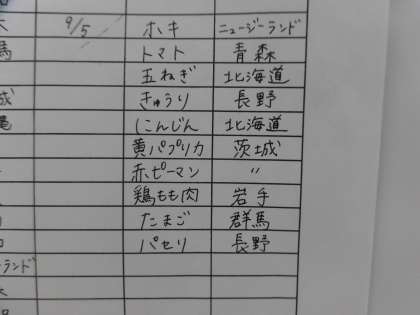 9/5 ホキ ニュージーランド
トマト 青森
五ねぎ 北海道
きゅうり 長野
成 にんじん 北海道
黄パプリカ 茨城
赤ピーマン 〃
鶏もも肉 岩手
たまご 群馬
パセリ 長野
ーランド